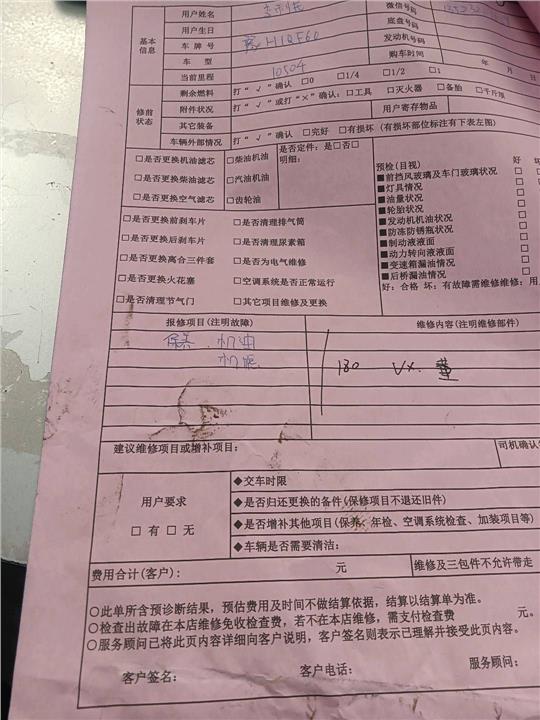 用户姓名 微信号码
用户生日 底盘号
基本信息 车牌号 H1QF60 发动机号码
车 型 购车时间
当前里程 10504 年 月 日
修前状态 剩余燃料 打“√”确认 □0 □1/4 □1/2 □1
附件状况 打“√”或打“×”确认：□工具 □灭火器 □备胎 □千斤顶
其它装备 用户寄存物品
车辆外部情况 打“√”确认 □完好 □有损坏（有损坏部位标注有下表左图）
□是否更换机油滤芯 □柴油机油 是否定件：是□否□
明细：
□是否更换柴油滤芯 □汽油机油
□是否更换空气滤芯 □齿轮油
预检(目视) 好 坏
■前挡风玻璃及车门玻璃状况 □
■灯具情况 □
■油量状况 □
■轮胎状况 □
■发动机机油状况 □
■防冻防锈瓶状况 □
■制动液液面 □
■动力转向液液面 □
■变速箱漏油情况 □
■后桥漏油情况 □
好：合格 坏：有故障需维修维修：用
□是否更换前刹车片 □是否清理排气筒
□是否更换后刹车片 □是否清理尿素箱
□是否更换离合三件套 □是否为电气维修
□是否更换火花塞 □空调系统是否正常运行
□是否清理节气门 □其它项目维修及更换
报修项目（注明故障） 维修内容（注明维修部件）
保养 机油
机滤 180
建议维修项目或增补项目： 司机确认
用户要求
□ 有 □ 无
◆交车时限
◆是否归还更换的备件(保修项目不退还旧件)
◆是否增补其他项目(保养、年检、空调系统检查、加装项目等)
◆车辆是否需要清洁：
费用合计(客户)： 元 维修及三包件不允许带走
○此单所含预诊断结果，预估费用及时间不做结算依据，结算以结算单为准。
○检查出故障在本店维修免收检查费，若不在本店维修，需支付检查费 元。
○服务顾问已将此页内容详细向客户说明，客户签名则表示已理解并接受此页内容。
客户签名： 客户电话： 服务顾问：